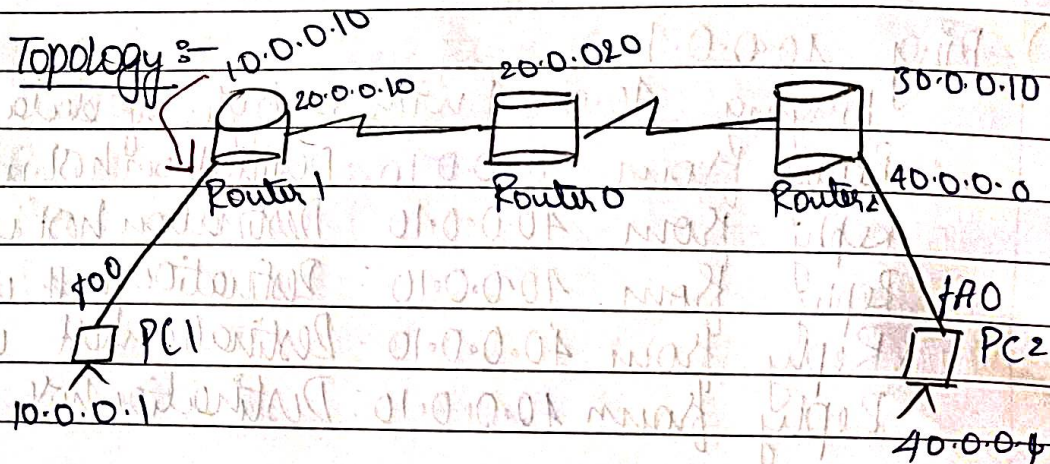 Topology :-
10.0.0.10
20.0.0.10
20.0.020
30.0.0.10
Router 1
Router 0
Router 2
40.0.0.0
f00
fA0
PC1
PC2
10.0.0.1
40.0.0.1